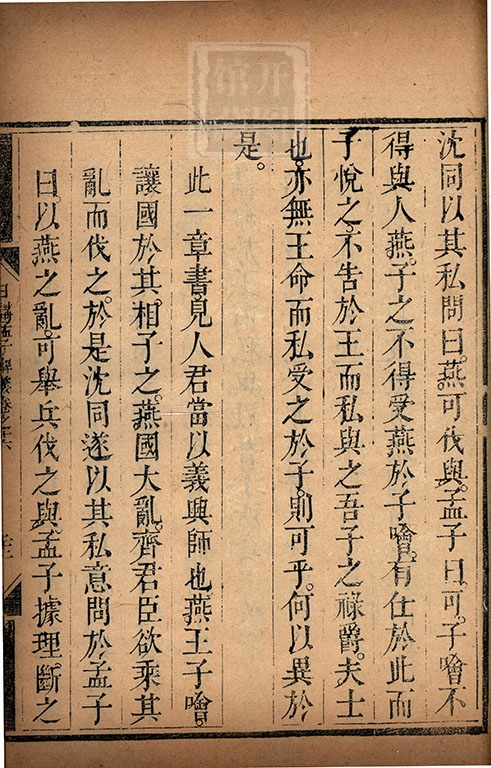 沈同以其私問曰。燕可伐與。孟子曰。可。子噲不
得與人燕。子之不得受燕於子噲。有仕於此而
子悅之。不告於王而私與之吾子之祿爵。夫士
也。亦無王命而私受之於子。則可乎。何以異於
是。
此一章書見人君當以義興師也燕王子噲。
讓國於其相子之。燕國大亂。齊君臣欲乘其
亂而伐之。於是沈同遂以其私意問於孟子
曰。以燕之亂。可舉兵伐之與。孟子據理斷之
日講孟子解義卷之十六